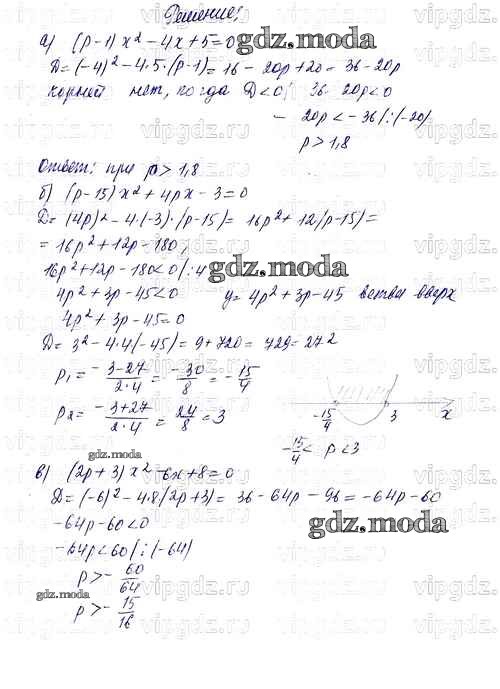 Решение:
а) (p-1)x² -4x+5=0
gdz.moda
D=(-4)²-4·5·(p-1)=16-20p+20=36-20p
корней нет, когда D<0; 36-20p<0
-20p<-36/:(-20)
p>1,8
Ответ: при p>1,8
б) (p-15)x²+4px-3=0
D=(4p)²-4·(-3)·(p-15)=16p²+12(p-15)=
=16p²+12p-180;
16p²+12p-180<0/:4
gdz.moda
4p²+3p-45<0 y=4p²+3p-45 ветви вверх
4p²+3p-45=0
D=3²-4·4(-45)=9+720=729=27²
p₁=-3-27/2·4=-30/8=-15/4
p₂=-3+27/2·4=24/8=3
-15/4 3 x
-15/4< p<3
gdz.moda
в) (2p+3)x²-6x+8=0
D=(-6)²-4·8(2p+3)=36-64p-96=-64p-60
-64p-60<0
gdz.moda
-64p<60/:(-64)
p>-60/64
gdz.moda
p>-15/16
vipgdz.ru